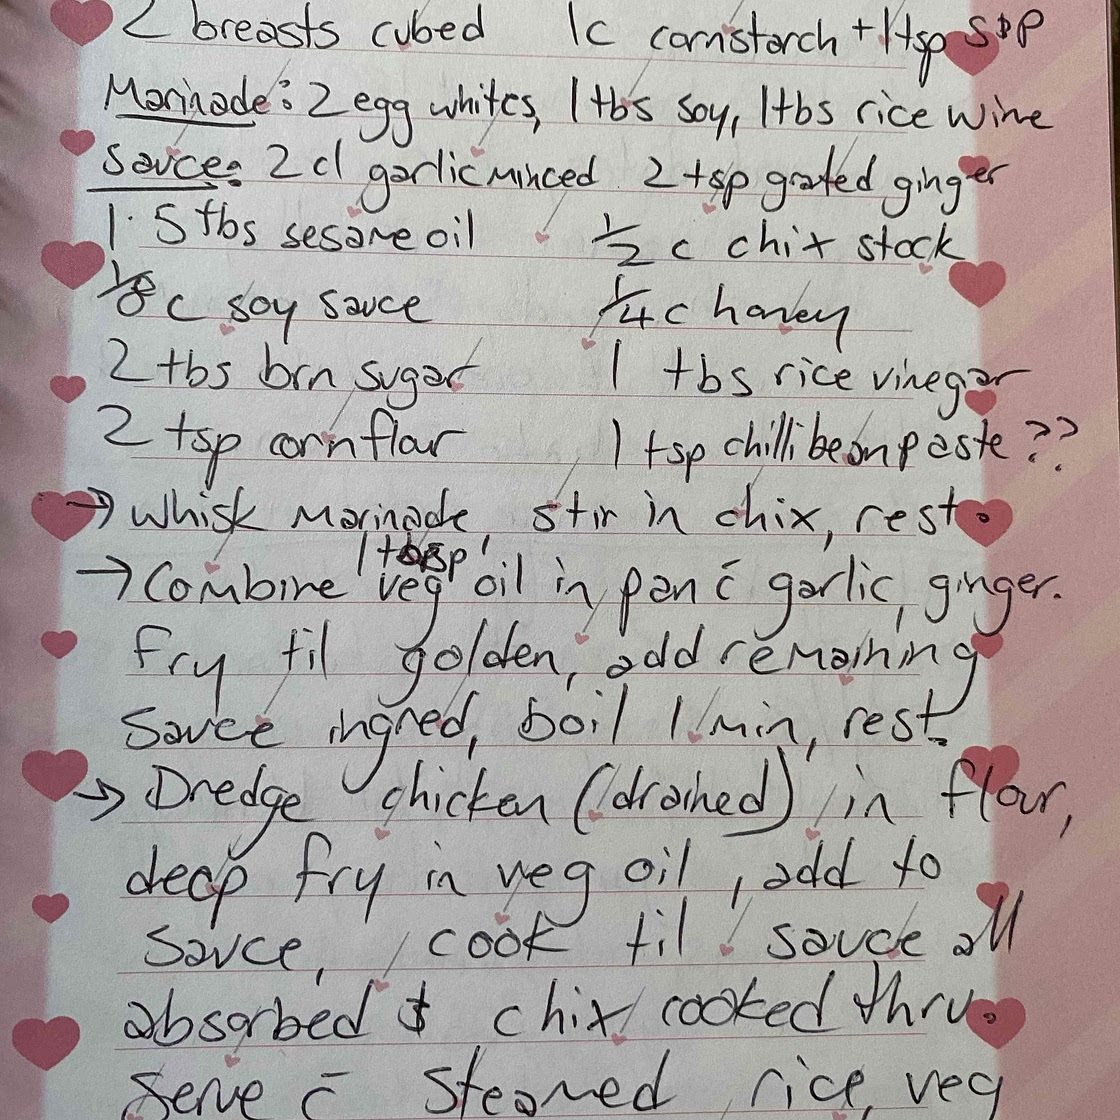 2 breasts cubed 1c cornstarch + 1tsp S&P
Marinade: 2 egg whites, 1tbs soy, 1tbs rice wine
Sauce: 2 cl garlic minced 2 tsp grated ginger
1.5 tbs sesame oil 1/2 c chix stock
1/8 c soy sauce 1/4 c honey
2 tbs brn sugar 1 tbs rice vinegar
2 tsp cornflour 1 tsp chilli bean paste ??
→ Whisk Marinade, stir in chix, rest.
1 tbsp
→ Combine veg oil in pan c̄ garlic, ginger.
Fry til golden, add remaining
Sauce ingred, boil 1 min, rest.
→ Dredge chicken (drained) in flour,
deep fry in veg oil, add to
Sauce, cook til sauce all
absorbed & chix cooked thru.
Serve c̄ steamed rice, veg